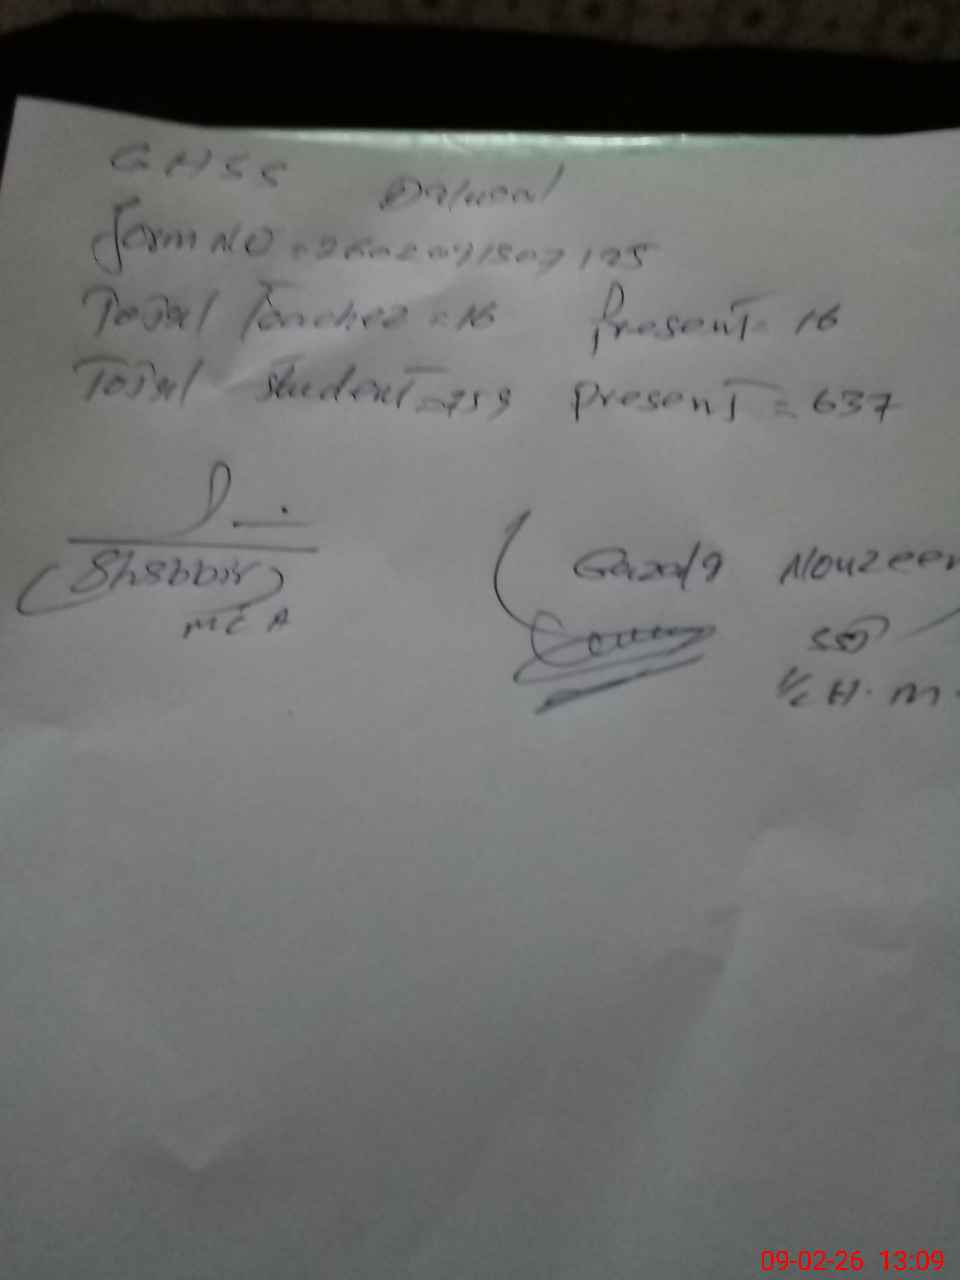 GHSS
Form NO = 2602091507125
Total Teacher = 16 Present = 16
Total student = 759 present = 637
(Shabbir)
MEA
Gazala Nouzeen
SST
I/C H.M.
09-02-26 13:09